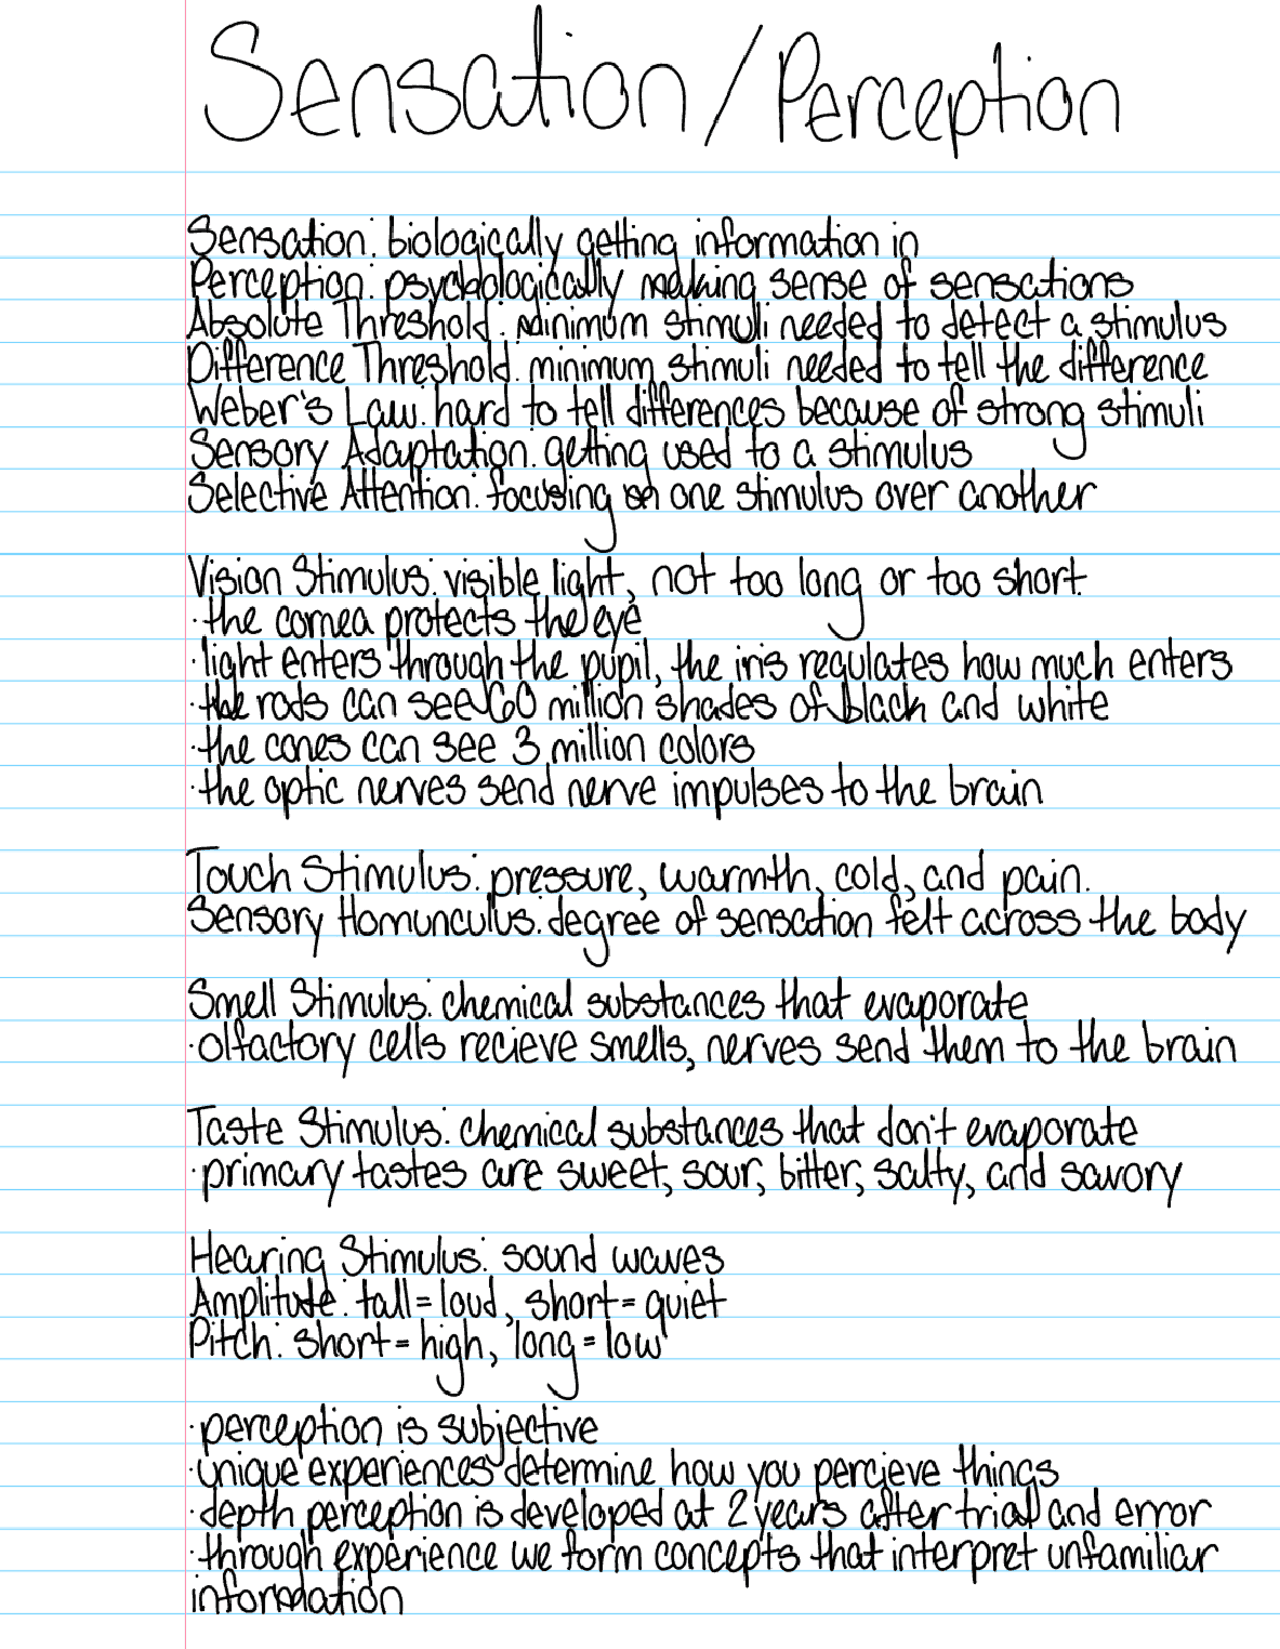 Sensation/Perception
Sensation: biologically getting information in
Perception: psychologically making sense of sensations
Absolute Threshold: minimum stimuli needed to detect a stimulus
Difference Threshold: minimum stimuli needed to tell the difference
Weber's Law: hard to tell differences because of strong stimuli
Sensory Adaptation: getting used to a stimulus
Selective Attention: focusing on one stimulus over another
Vision Stimulus: visible light, not too long or too short.
·the cornea protects the eye
·light enters through the pupil, the iris regulates how much enters
·the rods can see 60 million shades of black and white
·the cones can see 3 million colors
·the optic nerves send nerve impulses to the brain
Touch Stimulus: pressure, warmth, cold, and pain.
Sensory Homunculus: degree of sensation felt across the body
Smell Stimulus: chemical substances that evaporate
·olfactory cells recieve smells, nerves send them to the brain
Taste Stimulus: chemical substances that don't evaporate
·primary tastes are sweet, sour, bitter, salty, and savory
Hearing Stimulus: sound waves
Amplitude: tall=loud, short=quiet
Pitch: short=high, long=low
·perception is subjective
·unique experiences determine how you percieve things
·depth perception is developed at 2 years after trial and error
·through experience we form concepts that interpret unfamiliar
information